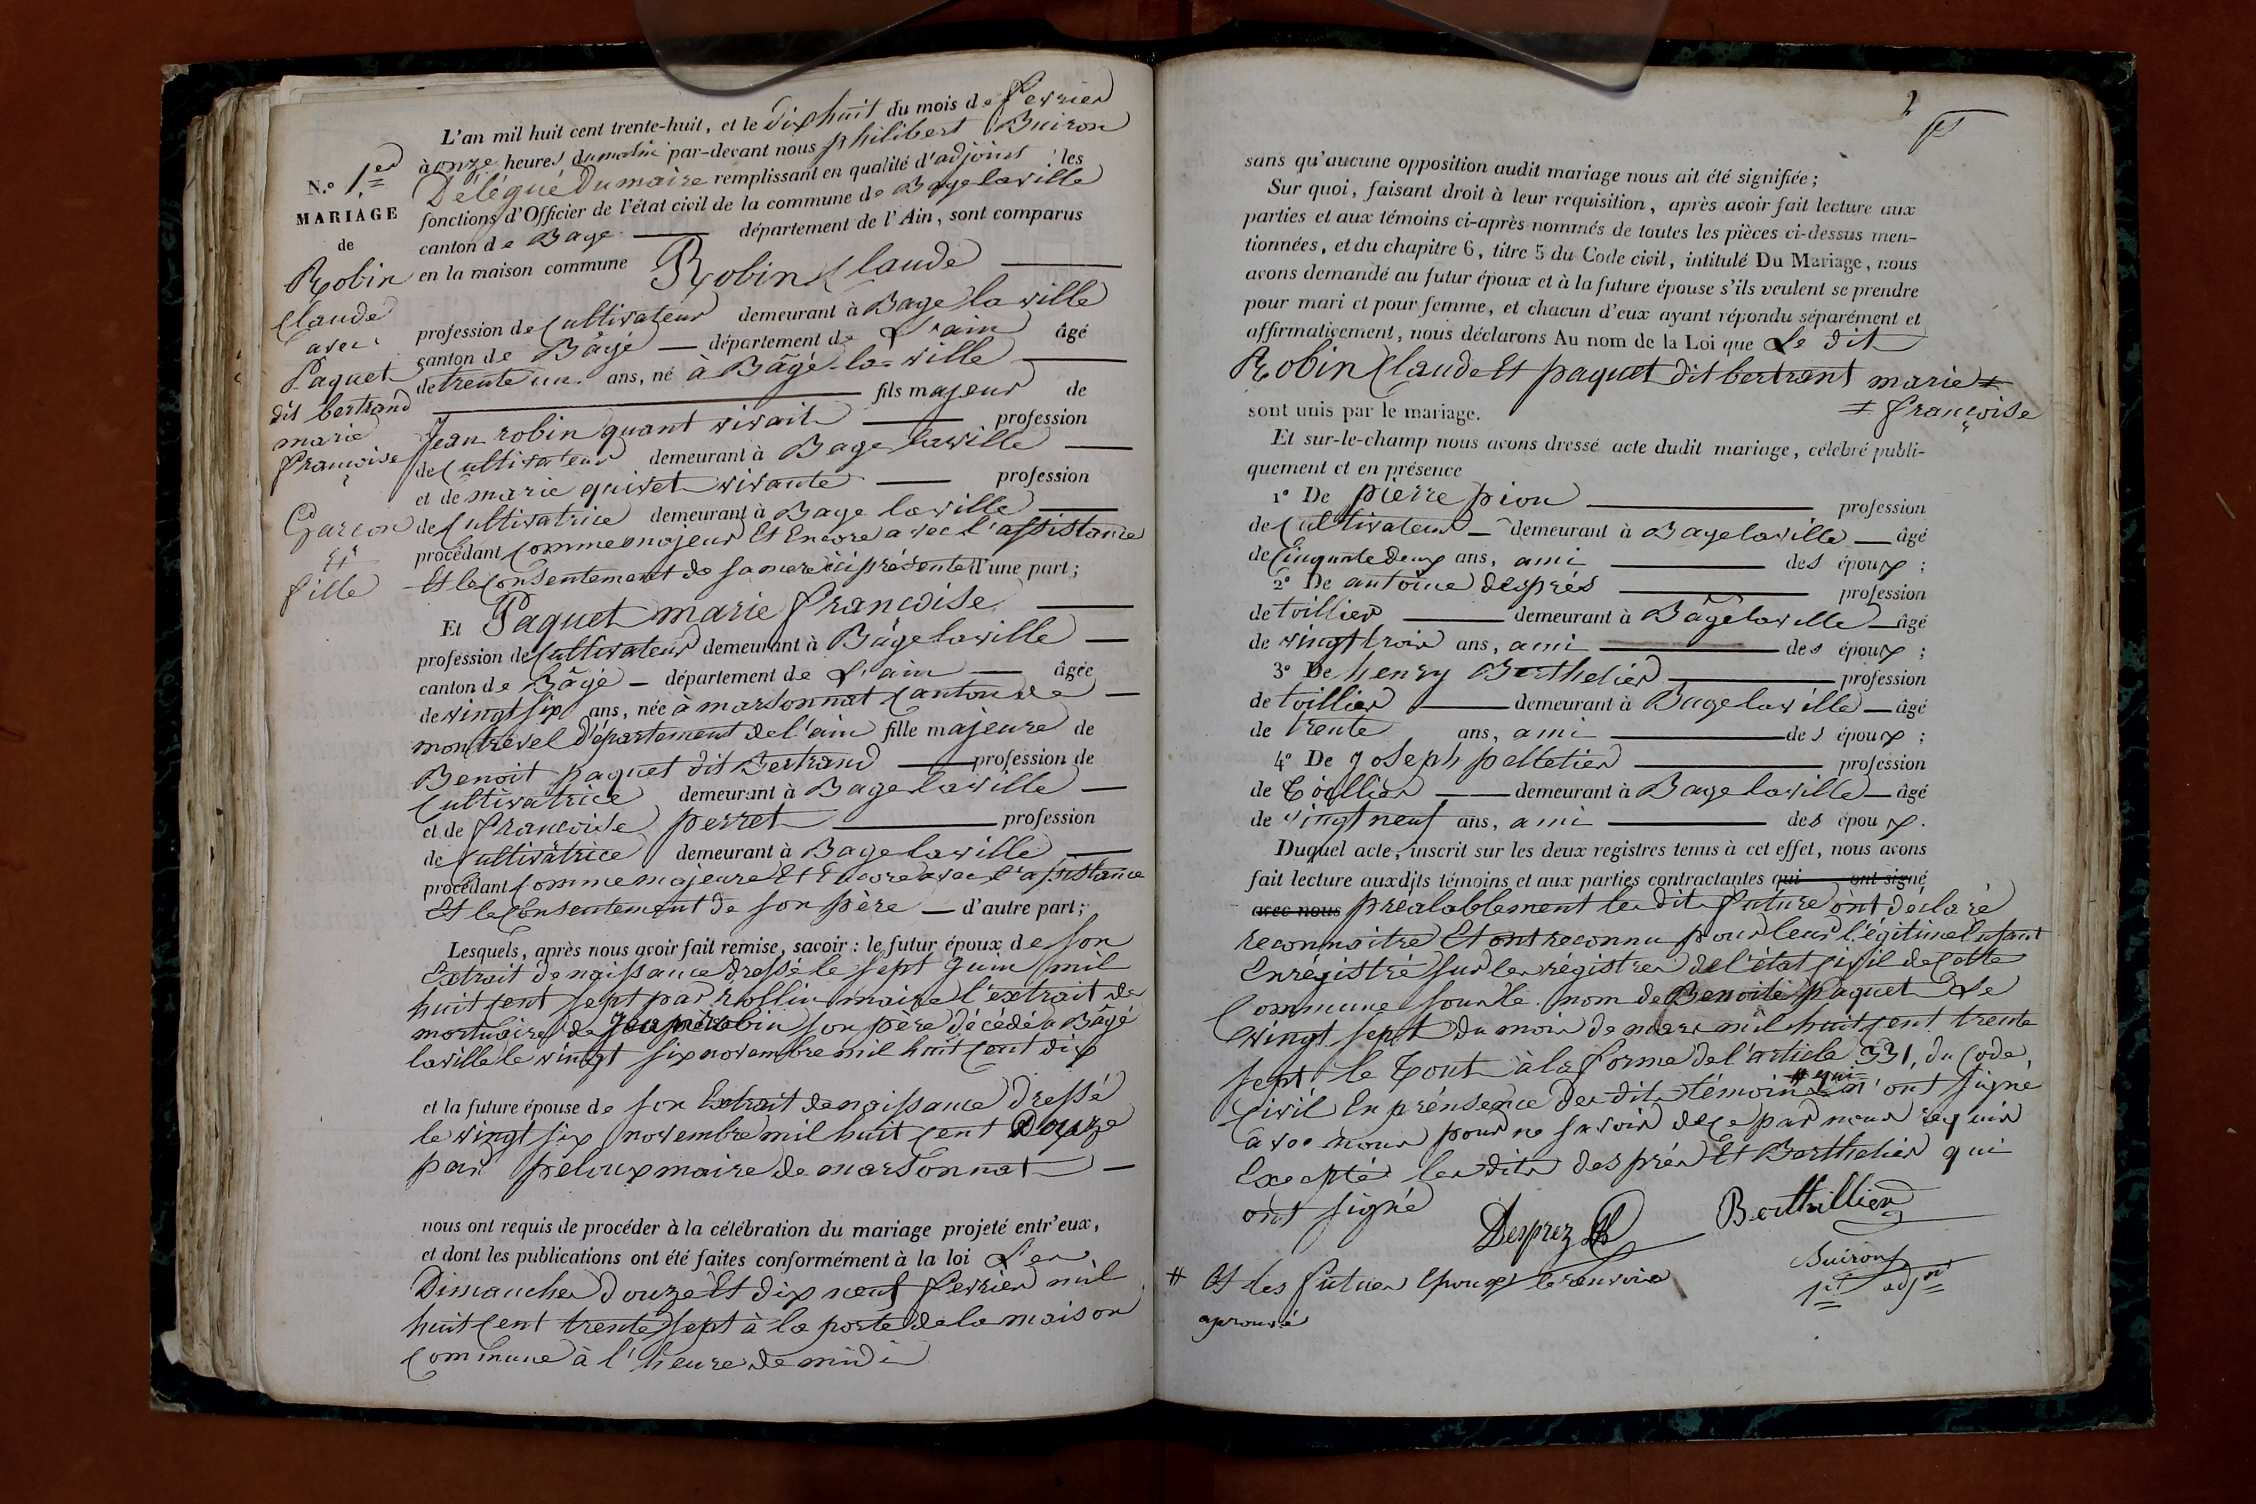 L'an mil huit cent trente-huit, et le Dixhuit du mois de fevrier
à onze heures du matin par-devant nous philibert Buiron
Délégué Du maire remplissant en qualité d'adjoint les
fonctions d'Officier de l'état civil de la commune de Bagelaville
canton de Bage département de l'Ain, sont comparus
en la maison commune Robin Claude
N.o 1er
MARIAGE
de
Robin
Claude
avec
Paquet
dit bertrand
marie
francoise
Garcon
Et
fille
profession de Cultivateur demeurant à Bage la ville
canton de Bâge — département de L'ain âgé
de trente un ans, né à Bâgé-la-ville
fils majeur de
Jean robin quant vivait profession
de Cultivateur demeurant à Bage laville
et de marie quivet vivante profession
de Cultivatrice demeurant à Bage laville
procédant Comme majeur Et Encore avec l'assistance
Et le Consentement de sa mere ici présente d'une part;
Et Paquet marie francoise
profession de Cultivateur demeurant à Bâgelaville
canton de Bâgé — département de L'ain âgée
de vingt six ans, née à marsonnat Canton de
montrevel département de l'ain fille majeure de
Benoit paquet dit Bertrand profession de
Cultivatrice demeurant à Bagelaville
et de francoise perret profession
de Cultivatrice demeurant à Bagelaville
procédant Comme majeure Et Encore avec l'assistance
Et le Consentement de son père — d'autre part;
Lesquels, après nous avoir fait remise, savoir: le futur époux de son
Extrait de naissance dressé le sept Juin mil
huit cent sept par rollin maire l'extrait de
mortuaire de robin son père décédé à Bâgé
laville le vingt six novembre mil huit cent dix
et la future épouse de son Extrait de naissance Dressé
le vingt six novembre mil huit cent Douze
par peloux maire de marsonnat
nous ont requis de procéder à la célébration du mariage projeté entr'eux,
et dont les publications ont été faites conformément à la loi Les
Dimanches Douze Et dix neuf fevrier mil
huit cent trente sept à la porte de la maison
Commune à l'heure de midi
2
sans qu'aucune opposition audit mariage nous ait été signifiée;
Sur quoi, faisant droit à leur requisition, après avoir fait lecture aux
parties et aux témoins ci-après nommés de toutes les pièces ci-dessus men-
tionnées, et du chapitre 6, titre 5 du Code civil, intitulé Du Mariage, nous
avons demandé au futur époux et à la future épouse s'ils veulent se prendre
pour mari et pour femme, et chacun d'eux ayant répondu séparément et
affirmativement, nous déclarons Au nom de la Loi que Le dit
Robin Claude Et paquet dit bertrant marie ≠
≠ françoise
sont unis par le mariage.
Et sur-le-champ nous avons dressé acte dudit mariage, célébré publi-
quement et en présence
1o De pierre pion profession
de Cultivateur — demeurant à Bagelaville — âgé
de Cinquante deux ans, ami des époux;
2o De antoine després profession
de toillier demeurant à Bâgelaville — âgé
de vingt trois ans, ami des époux;
3o De henry Berthelier profession
de toillier demeurant à Bagelaville — âgé
de trente ans, ami des époux;
4o De Joseph pelletier profession
de Toillier demeurant à Bagelaville — âgé
de vingt neuf ans, ami des époux.
Duquel acte, inscrit sur les deux registres tenus à cet effet, nous avons
fait lecture auxdits témoins et aux parties contractantes qui ont signé
avec nous préalablement les dits future ont déclaré
reconnaitre Et ont reconnu pour leur légitime Enfant
Enrégistré sur les régistres de l'état Civil de Cette
Commune sous le nom de Benoite paquet Le
vingt sept du mois de mars mil huit cent trente
sept le Tout à la forme de l'article 331 du Code
Civil En présence des dits témoins # qui n'ont signé
avec nous pour ne savoir de ce par nous requis
Excepté les dits després Et Berthelier qui
ont signé
Desprez
Berthillier
Buiron
1er adjt
# Et les futurs Epoux le renvoi
aprouvé